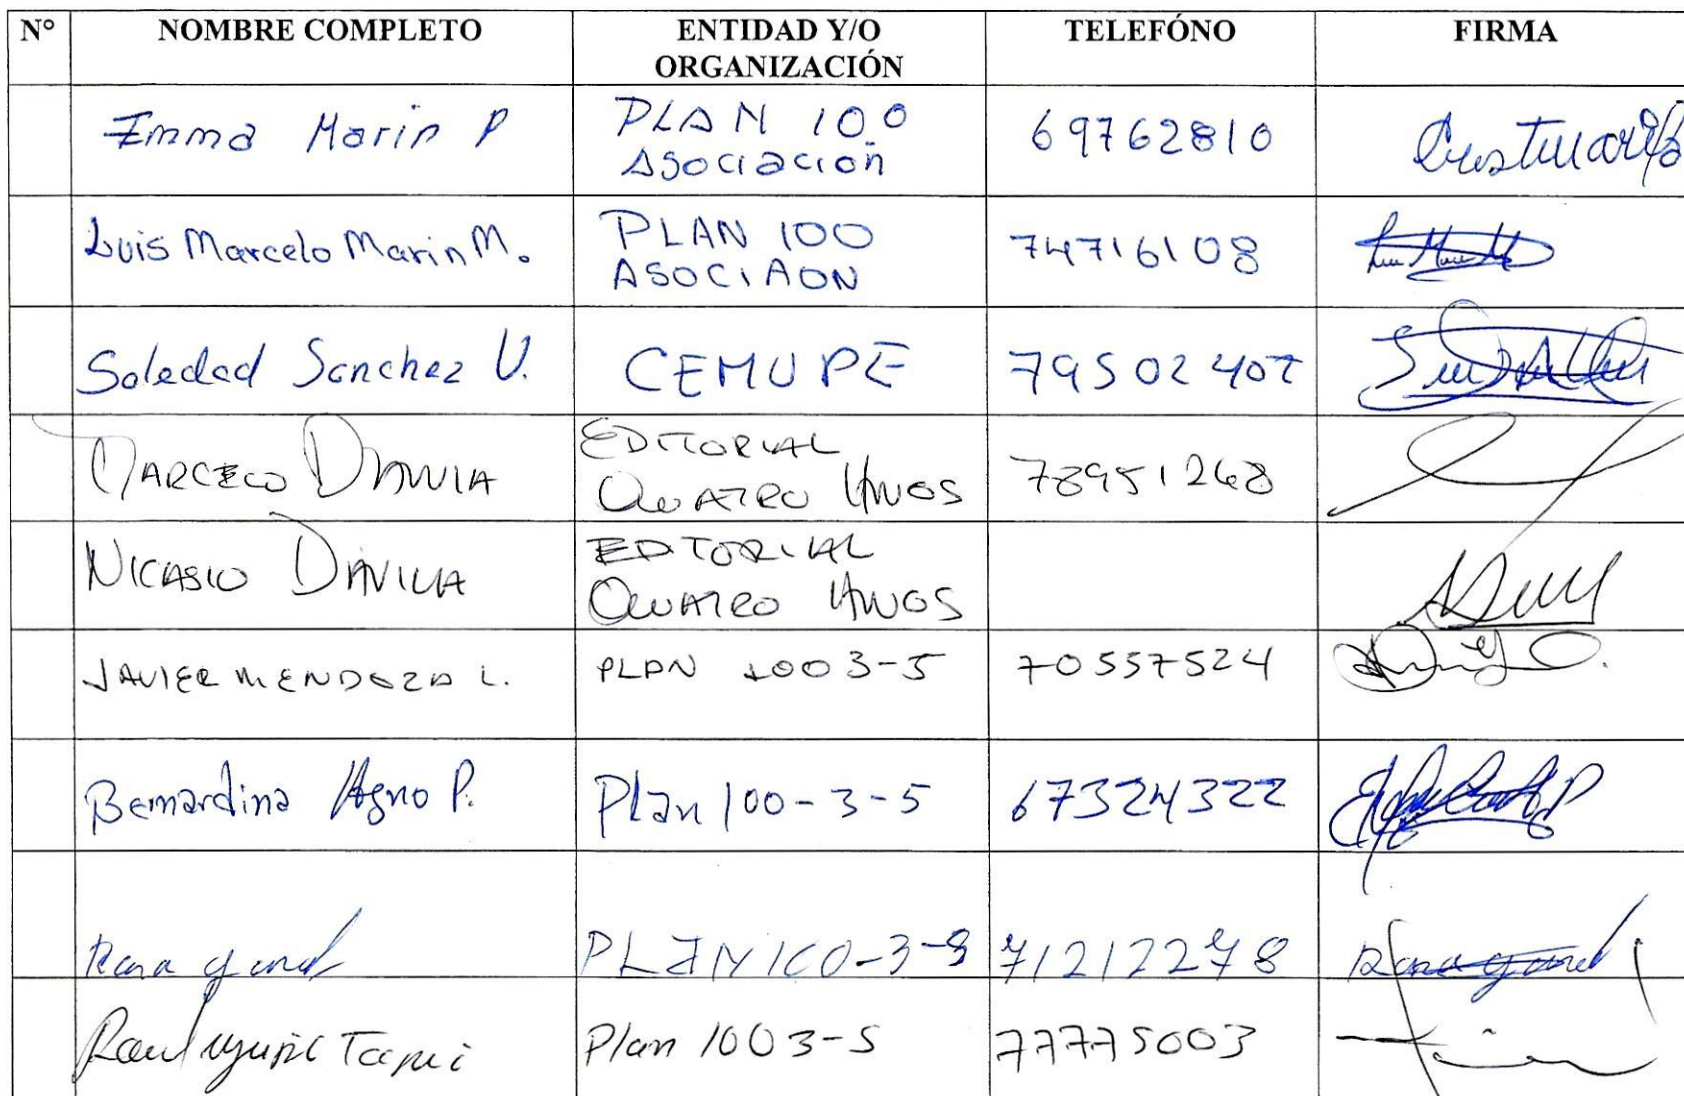 N° NOMBRE COMPLETO ENTIDAD Y/O ORGANIZACIÓN TELEFÓNO FIRMA
Emma Marin P PLAN 100 Asociación 69762810
Luis Marcelo Marin M. PLAN 100 ASOCIAON 74716108
Soledad Sanchez V. CEMUPE 79502407
MARCELO DAVILA EDITORIAL QUATRO HNOS 78951268
NICASIO DAVILA EDTORIAL QUATRO HNOS
JAVIER MENDOZA L. PLAN 1003-5 70557524
Bernardina Agno P. Plan 100-3-5 67324322
PLAN 100-3-5 71212278
Raul Tapui Plan 1003-5 77775003